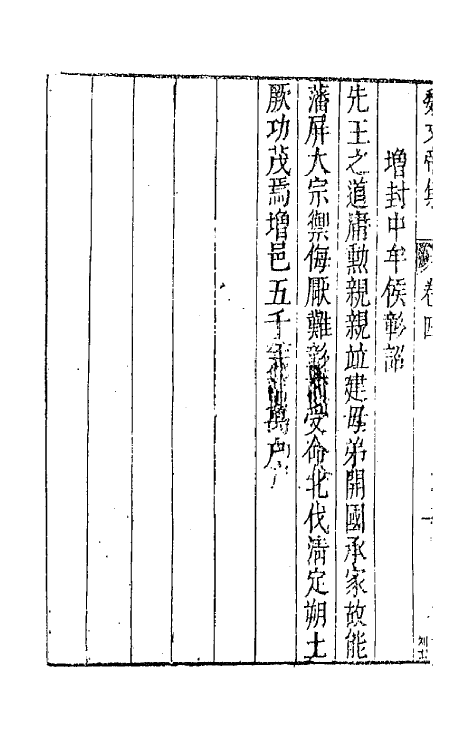 魏文帝集 卷四
增封中牟侯彰詔
先王之道庸勲親親並建母弟開國承家故能
藩屏大宗禦侮厭難彰 受命北伐清定朔土
厥功茂焉增邑五千 萬戶